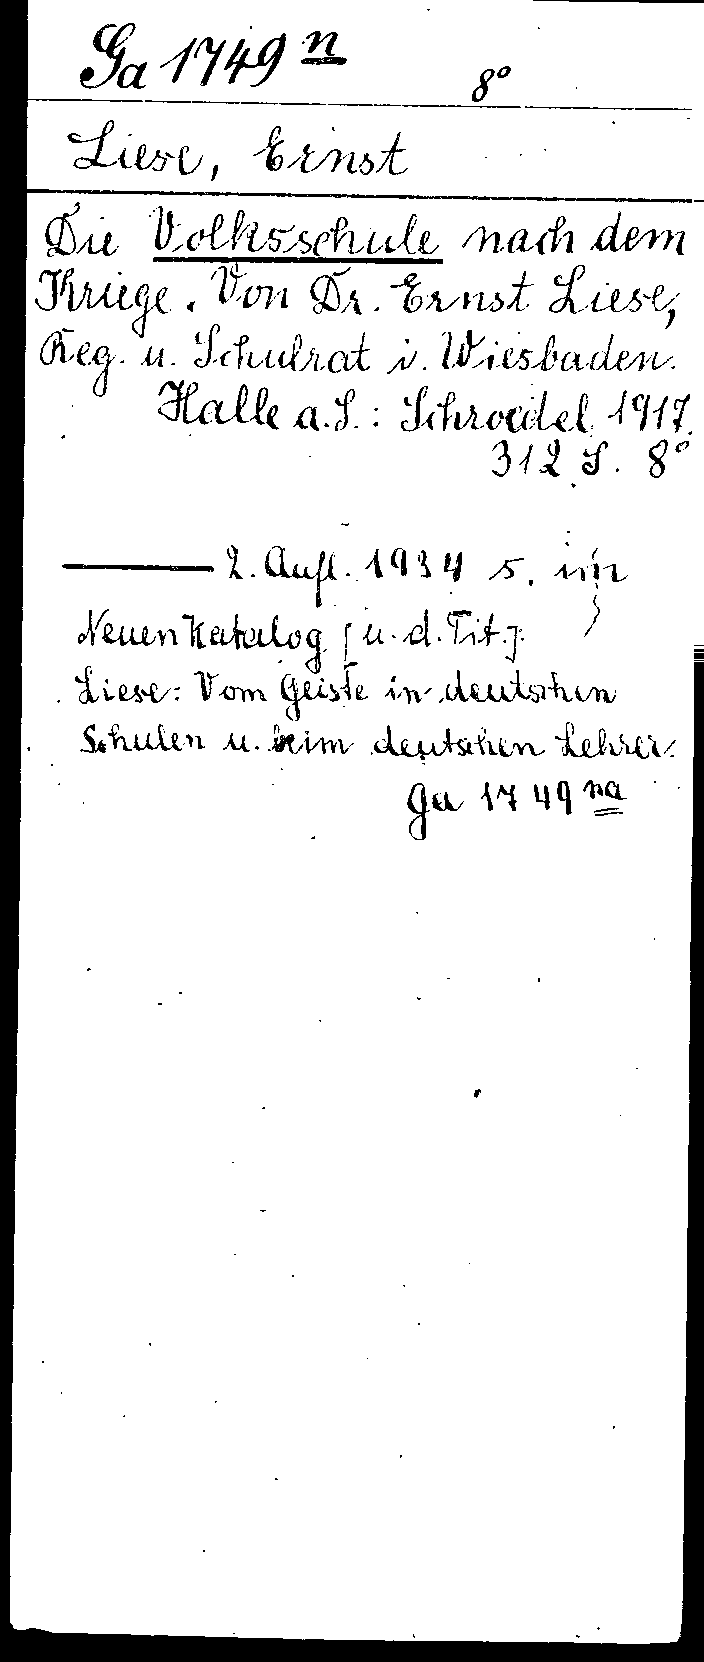 Ga 1749 n
8°
Liese, Ernst
Die Volksschule nach dem
Kriege. Von Dr. Ernst Liese,
Reg. u. Schulrat i. Wiesbaden.
Halle a.S.: Schroedel 1917.
312 S. 8°
——— 2. Aufl. 1934 s. im
Neuen Katalog [u. d. Tit.].
Liese: Vom Geiste in deutschen
Schulen u. beim deutschen Lehrer.
Ga 1749 na